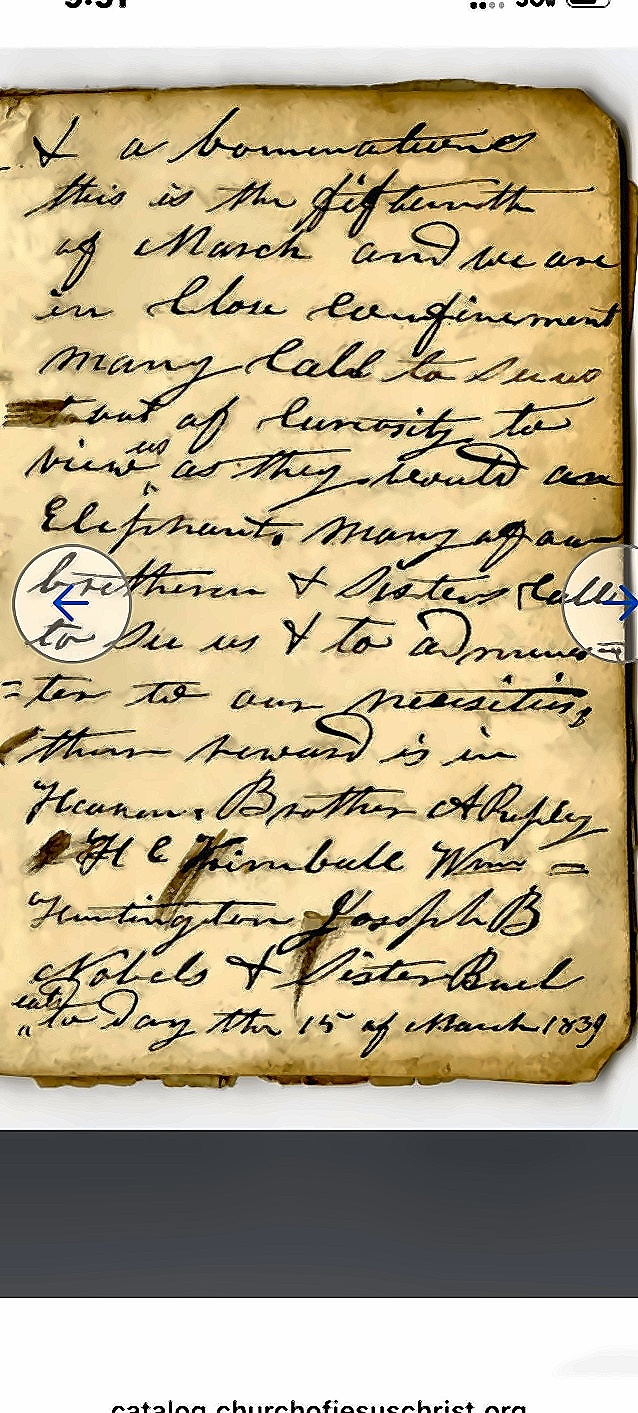 9:51
50w
& a bominations
this is the fifteenth
of March and we are
in Close confinement
many Call to see us
out of Curiosity to
view us as they would an
Elephant. many of our
bretheren & Sisters Calle
to See us & to adminis=
=ter to our necesities,
thair reward is in
Heaven. Brother A Ripley
H C Kimball Wm =
Huntington Joseph B
Nobels & Sister Buel
eat
to Day the 15 of March 1839
catalog.churchofjesuschrist.org